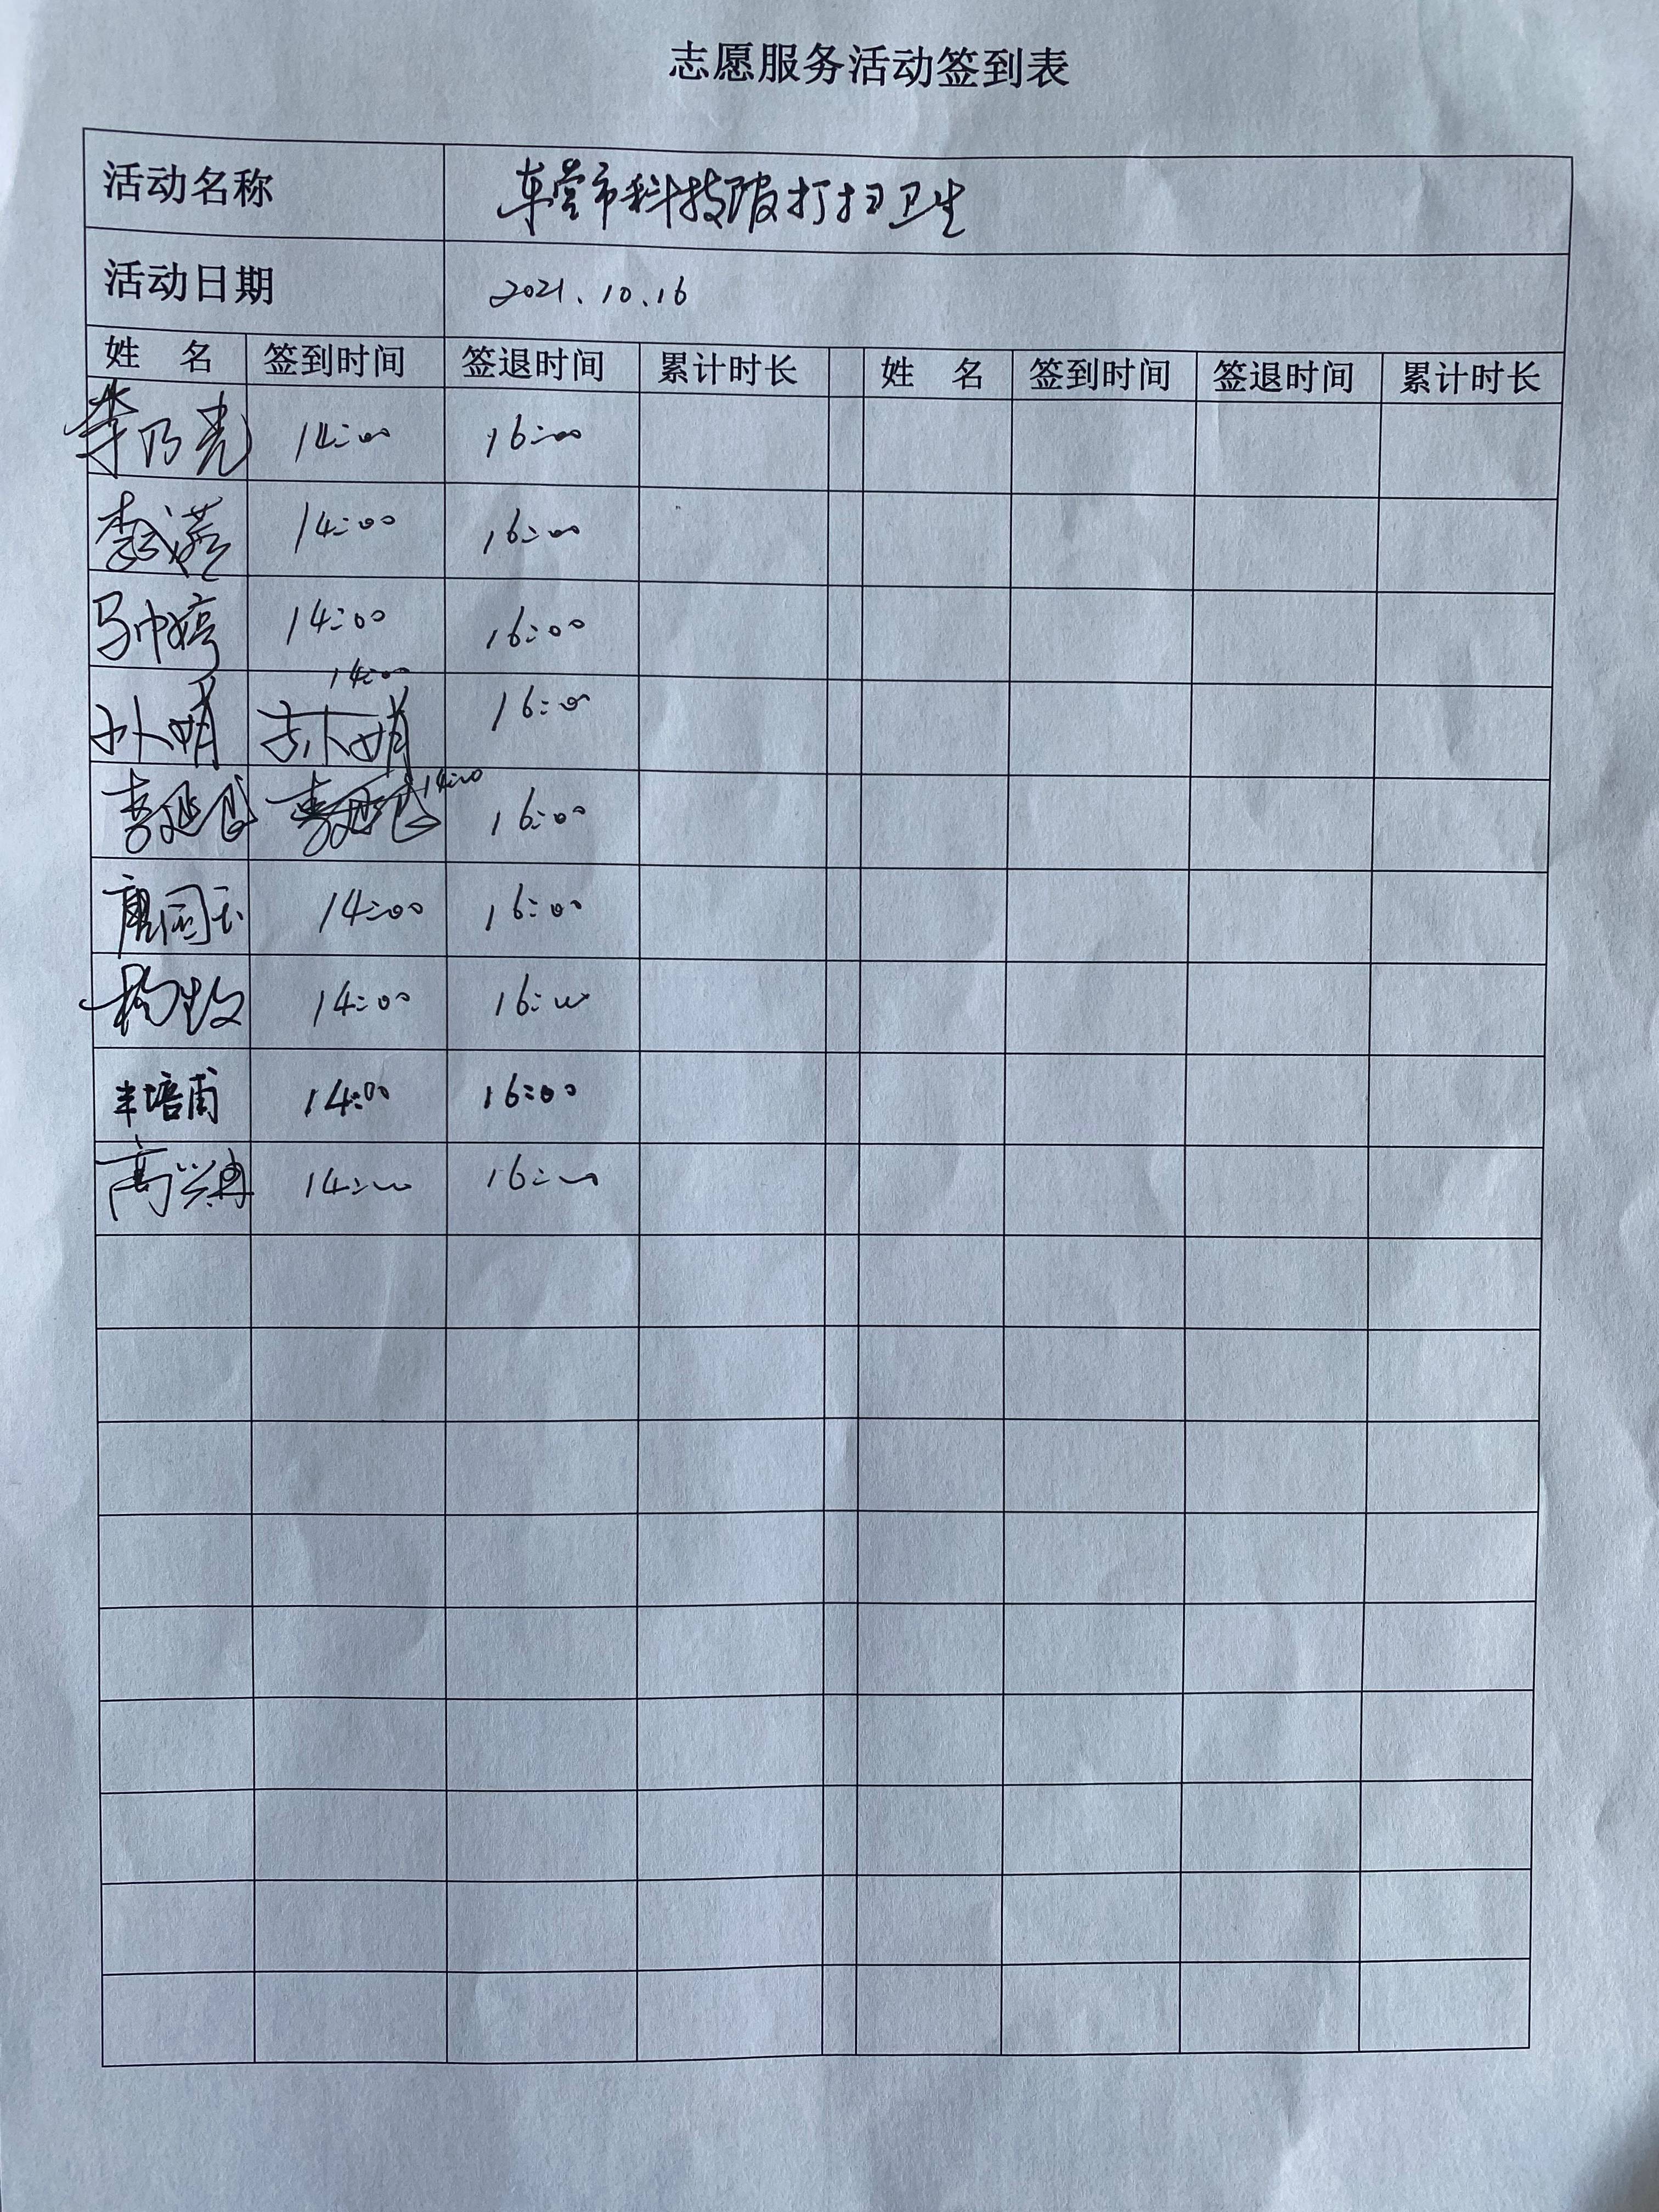 志愿服务活动签到表
活动名称 东营市科技馆打扫卫生
活动日期 2021.10.16
姓 名 签到时间 签退时间 累计时长 姓 名 签到时间 签退时间 累计时长
李乃亮 14:00 16:00
14:00 16:00
马帅婷 14:00 16:00
14:00
孙娟 孙娟 16:00
李延良 14:00 16:00
唐园玉 14:00 16:00
杨牧 14:00 16:00
丰培甫 14:00 16:00
高兴冉 14:00 16:00